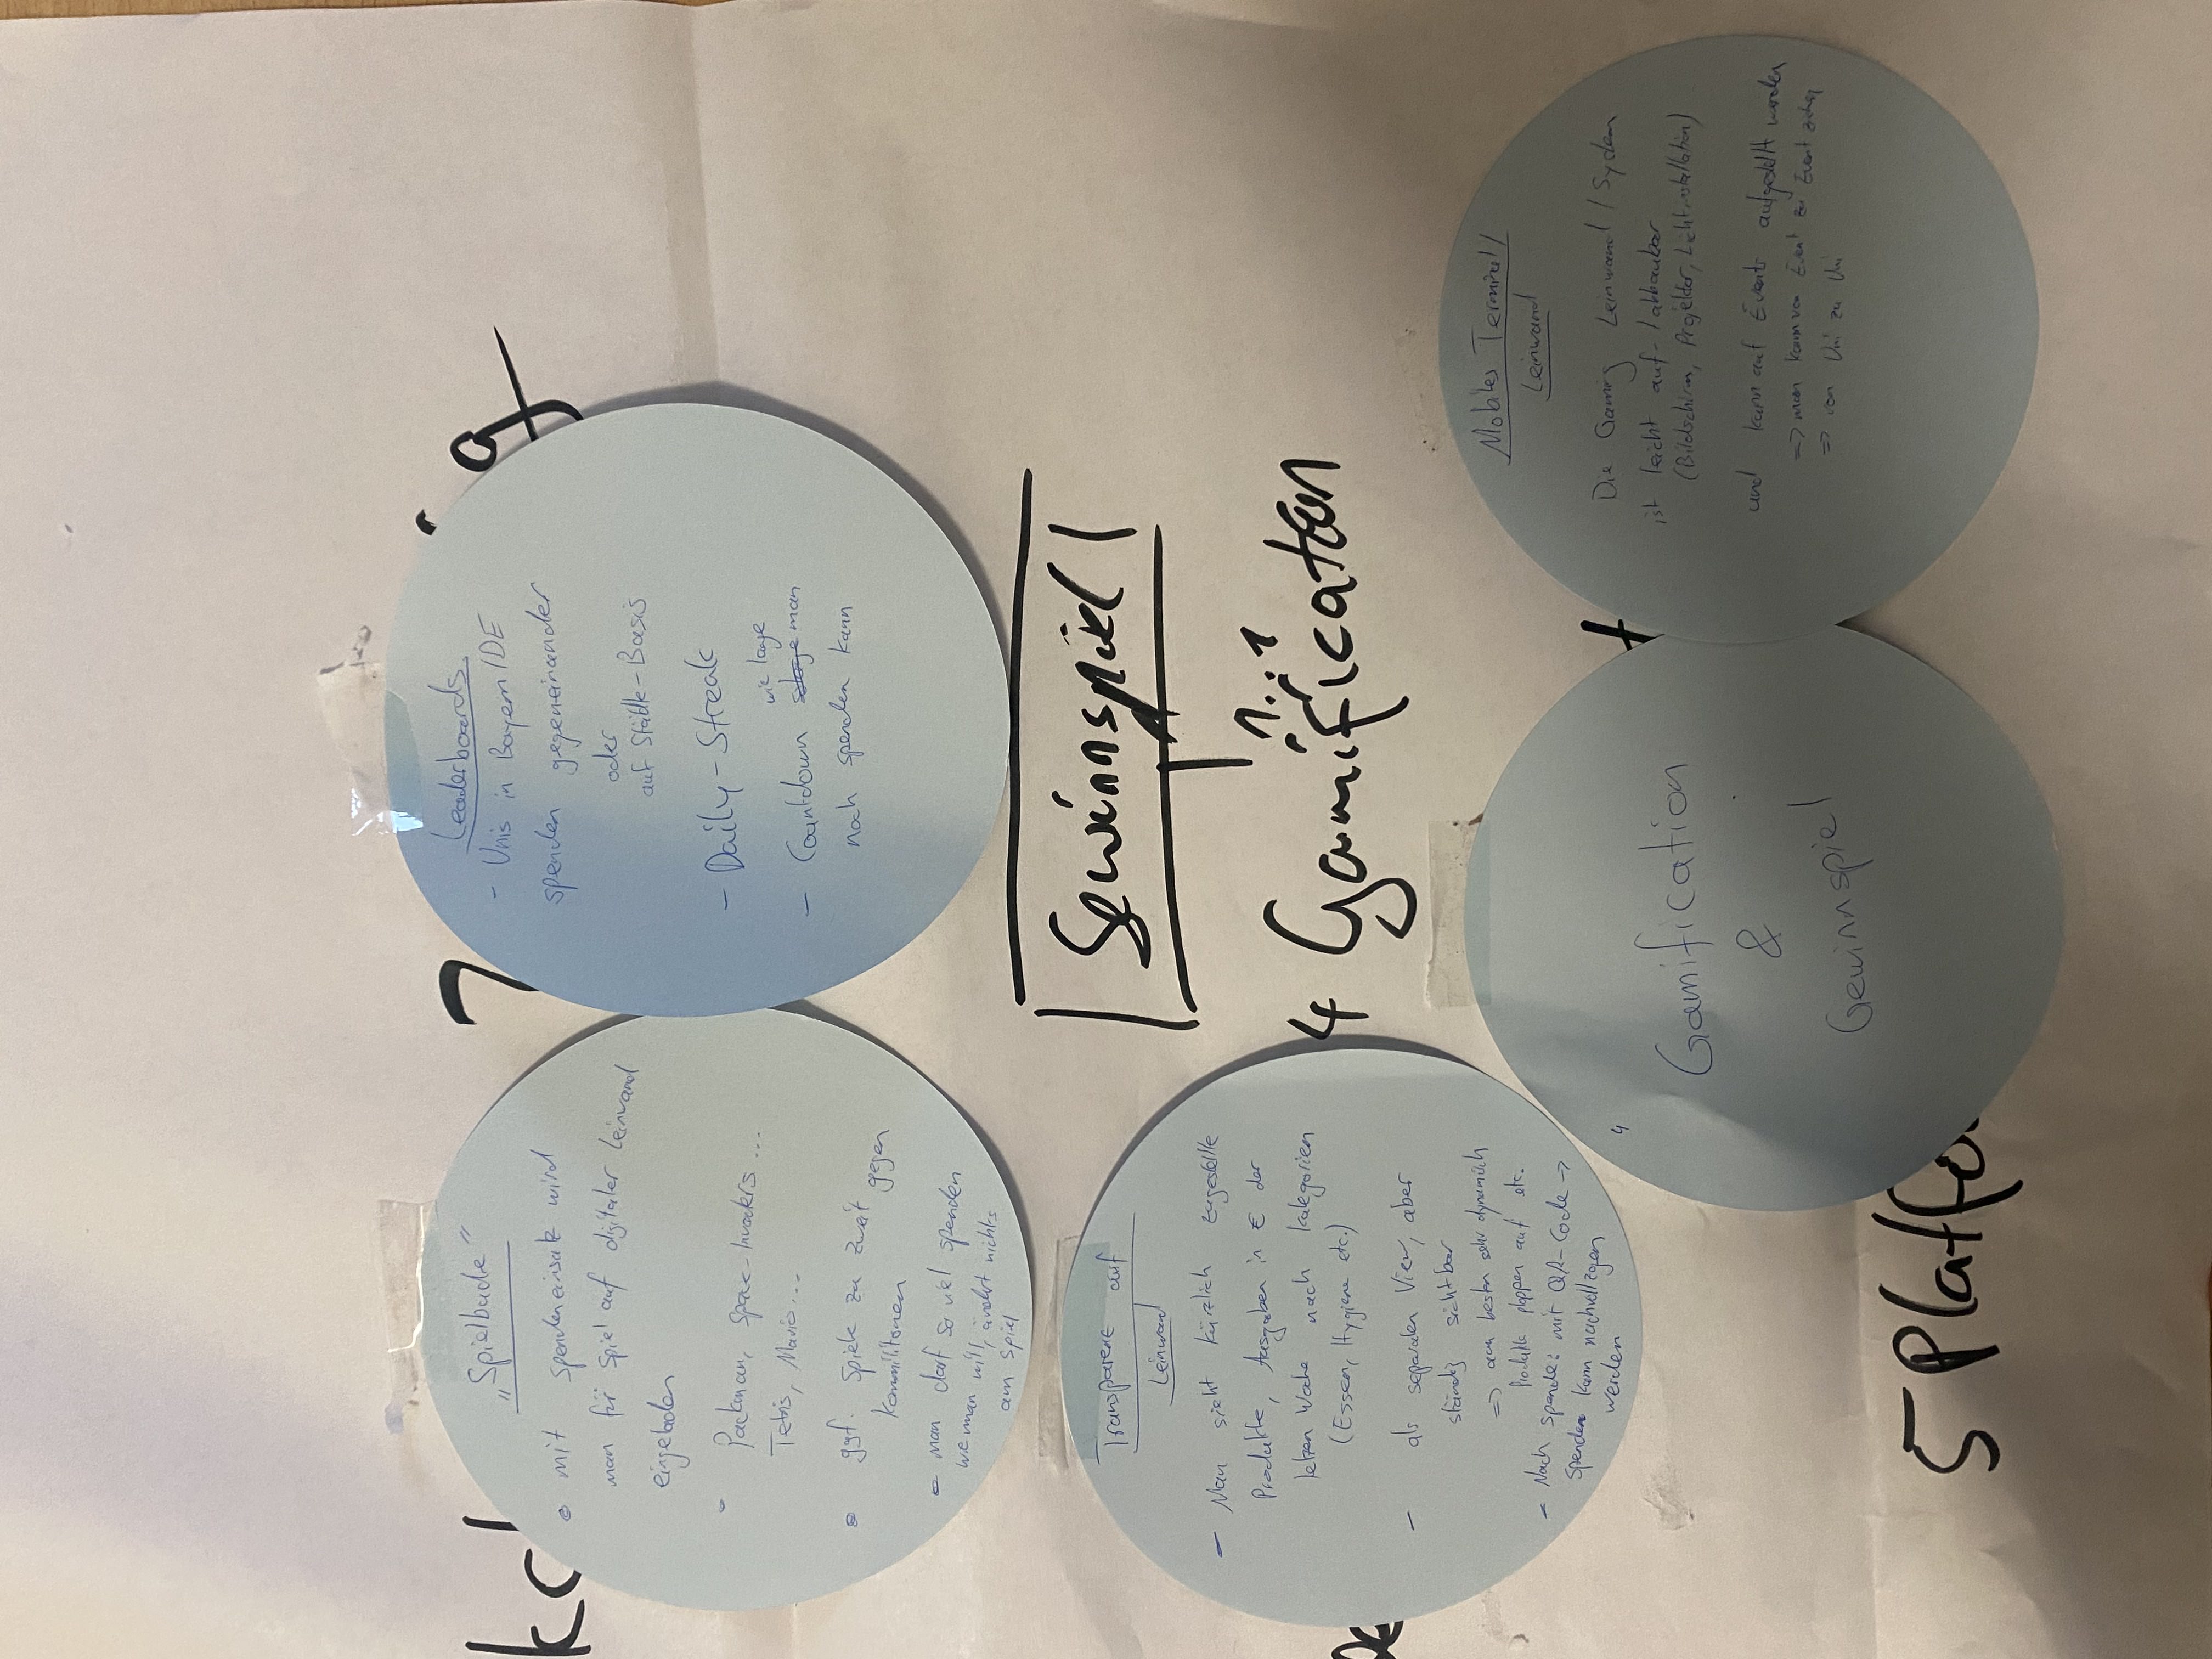 „Spielbude“
mit Spendeneinsatz wird
man für Spiel auf digitaler Leinwand
eingeladen
- Packman, Space-Invaders...
Tetris, Mario...
ggf. Spiele zu zweit gegen
Kommilitonen
man darf so viel spenden
wie man will, ändert nichts
am Spiel
7
g
Leaderboards
- Unis in Bayern/DE
spenden gegeneinander
oder
auf Städte-Basis
- Daily-Streak
wie lange
- Countdown man
noch spenden kann
Gewinnspiel
4 Gamification
Transparenz auf
Leinwand
- Man sieht kürzlich zugestellte
Produkte, Ausgaben in € der
letzen Woche nach Kategorien
(Essen, Hygiene etc.)
- als separaten View, aber
ständig sichtbar
=> am besten sehr dynamisch
Produkte ploppen auf etc.
- Nach Spende: mit QR-Code →
Spenden kann nachvollzogen
werden
4
Gamification
&
Gewinnspiel
Mobiles Terminal/
Leinwand
Die Gaming Leinwand / System
ist leicht auf-/abbaubar
(Bildschirm, Projektor, Lichtinstallation)
und kann auf Events aufgestellt werden
=> man kann von Event zu Event ziehen
=> von Uni zu Uni
5 Platfo